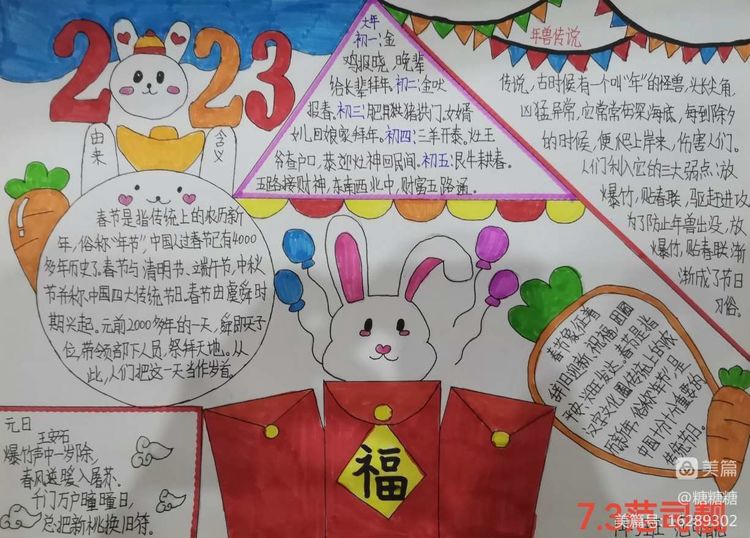 2023
由来
含义
大年
初一:金
鸡报晓,晚辈
给长辈拜年。初二:金吠
报春。初三:肥月拱猪拱门,女婿
女儿回娘家拜年。初四:三羊开泰。灶王
爷查户口,恭迎灶神回民间。初五:艮牛耕春。
五路接财神,东南西北中,财富五路通。
年兽传说
传说,古时候有一个叫"年"的怪兽,头长尖角,
凶猛异常,它常常在深海底,每到除夕
的时候,便爬上岸来,伤害人们。
人们利入它的三大弱点:放
爆竹,贴春联,驱赶进攻
为了防止年兽出没,放
爆竹,贴春联渐
渐成了节日
习俗。
春节是指传统上的农历新
年,俗称"年节"中国人过春节已有4000
多年历史了。春节与清明节、端午节,中秋
节并称中国四大传统节日。春节由虞舜时
期兴起。元前2000多年的一天,舜即天子
位,带领部下人员,祭拜天地。从
此,人们把这一天当作岁首。
春节象征着
辞旧迎新,祝福,团圆
平安,兴旺发达。春节是指
汉字文化圈传统上的农
历新年,俗称"年节"是
中国十分十分重要的
传统节日。
福
元日
王安石
爆竹声中一岁除,
春风送暖入屠苏。
千门万户曈曈日,
总把新桃换旧符。
美篇
@糖糖糖
7.3
美篇号:16289302